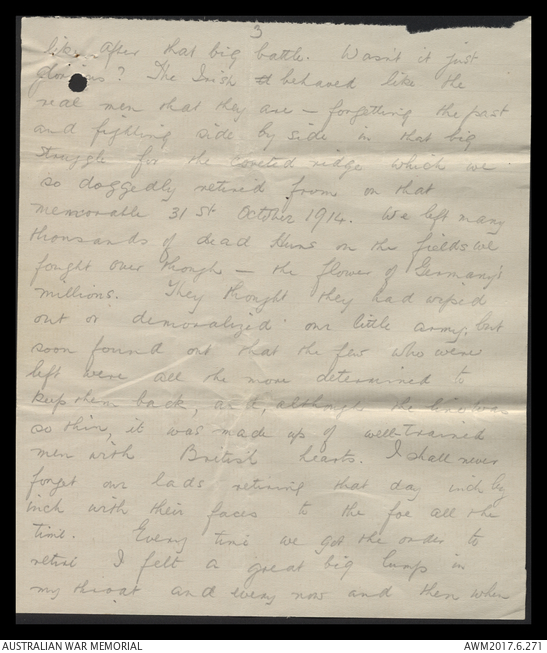 3
like after that big battle. Wasn't it just
glorious? The Irish behaved like the
real men that they are – forgetting the past
and fighting side by side in that big
struggle for the coveted ridge which we
so doggedly retired from on that
memorable 31st October 1914. We left many
thousands of dead Huns on the fields we
fought over though – the flower of Germany's
millions. They thought they had wiped
out or demoralized our little army, but
soon found out that the few who were
left were all the more determined to
keep them back, and, although the line was
so thin, it was made up of well-trained
men with British hearts. I shall never
forget our lads retiring that day inch by
inch with their faces to the foe all the
time. Every time we got the order to
retire I felt a great big lump in
my throat and every now and then when
AUSTRALIAN WAR MEMORIAL
AWM2017.6.271